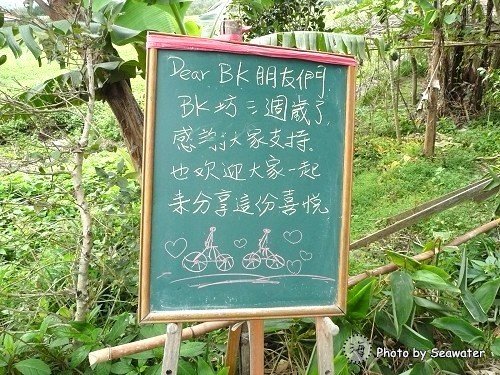 Dear BK 朋友們
BK坊三週歲了
感芶大家支持.
也欢迎大家一起
來分享這份喜悅
Photo by Seawater